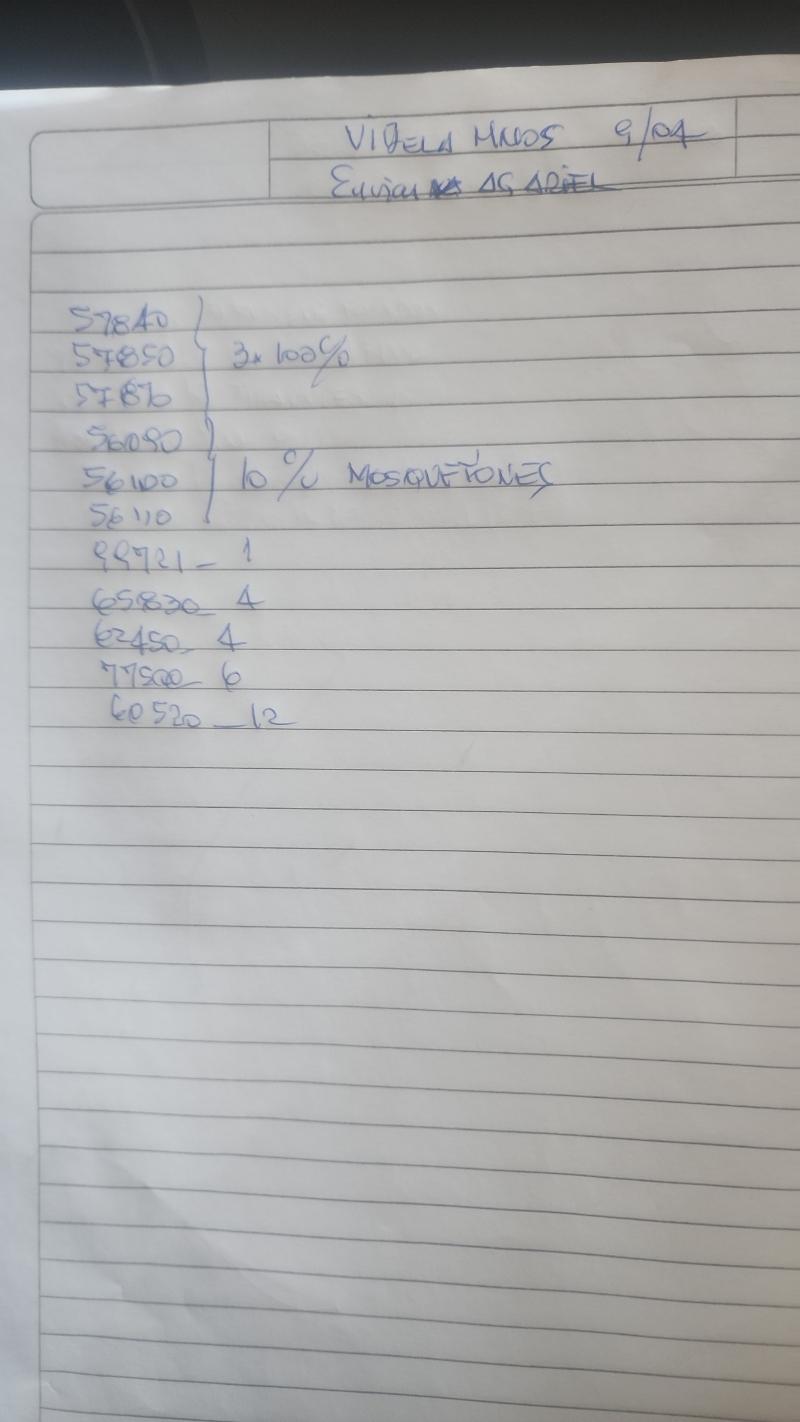 VIDELA HNOS 9/04
Enviar AG ARIEL
57840
57850 3x100 c/
57870
56090
56100 10 c/ MOSQUETONES
56110
99721 - 1
65830 - 4
62450 - 4
77500 - 6
60520 - 12